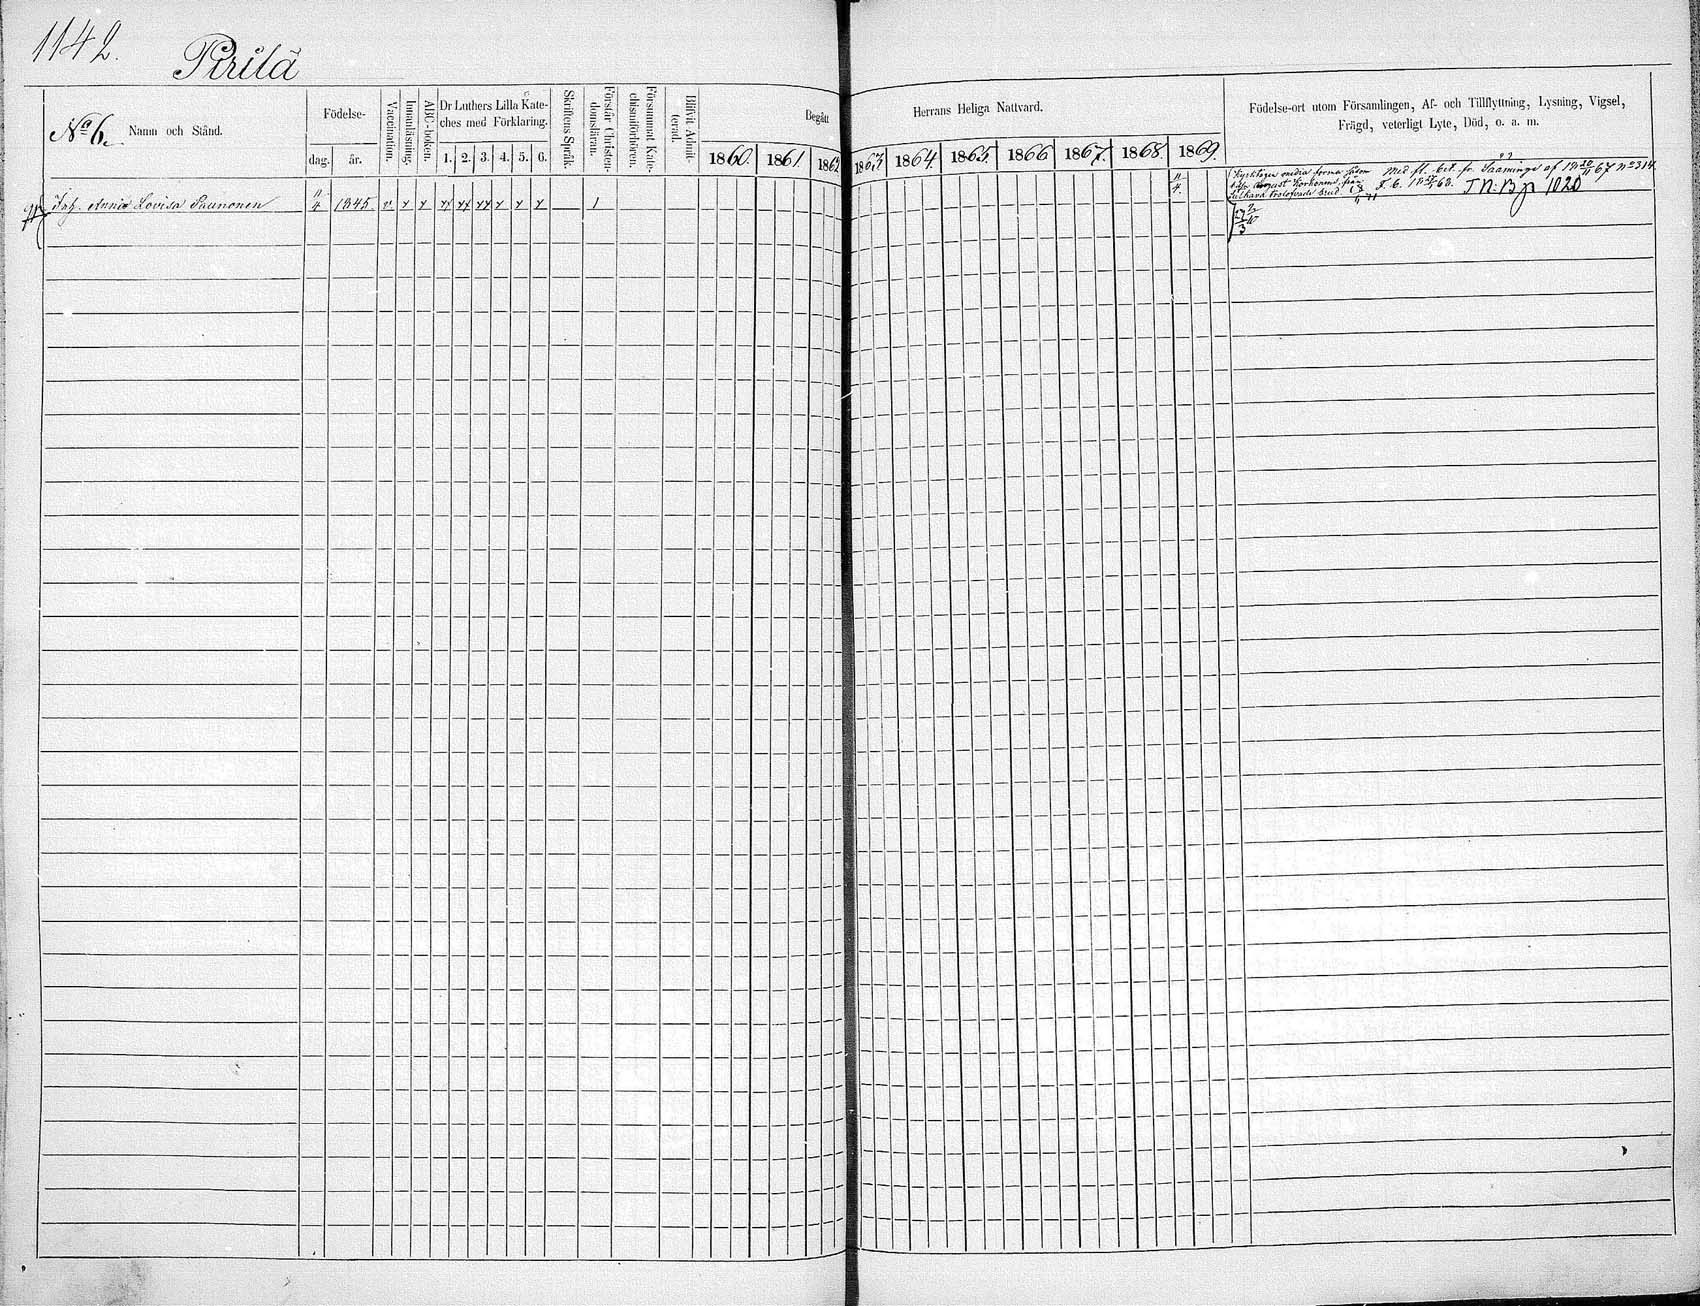 1142.
Pirilä
No 6.
Namn och Stånd.
Födelse-
dag.
år.
Vaccination.
Innanläsning.
ABC-boken.
Dr Luthers Lilla Kate-
ches med Förklaring.
1. 2. 3. 4. 5. 6.
Skriftens Språk.
Förstår Christen-
domsläran.
Försummat Kate-
chismiförhören.
Blifvit Admit-
terad.
Begått
Herrans Heliga Nattvard.
1860. 1861. 1862 1863 1864. 1865. 1866 1867. 1868 1869.
Födelse-ort utom Församlingen, Af- och Tillflyttning, Lysning, Vigsel,
Frägd, veterligt Lyte, Död, o. a. m.
Anna Lovisa Paunonen 11/4 1845 1
11/4.
med fl. bet. fr. Sääminge af 67 no 314
August Korhonen från
T. N: B p 1020